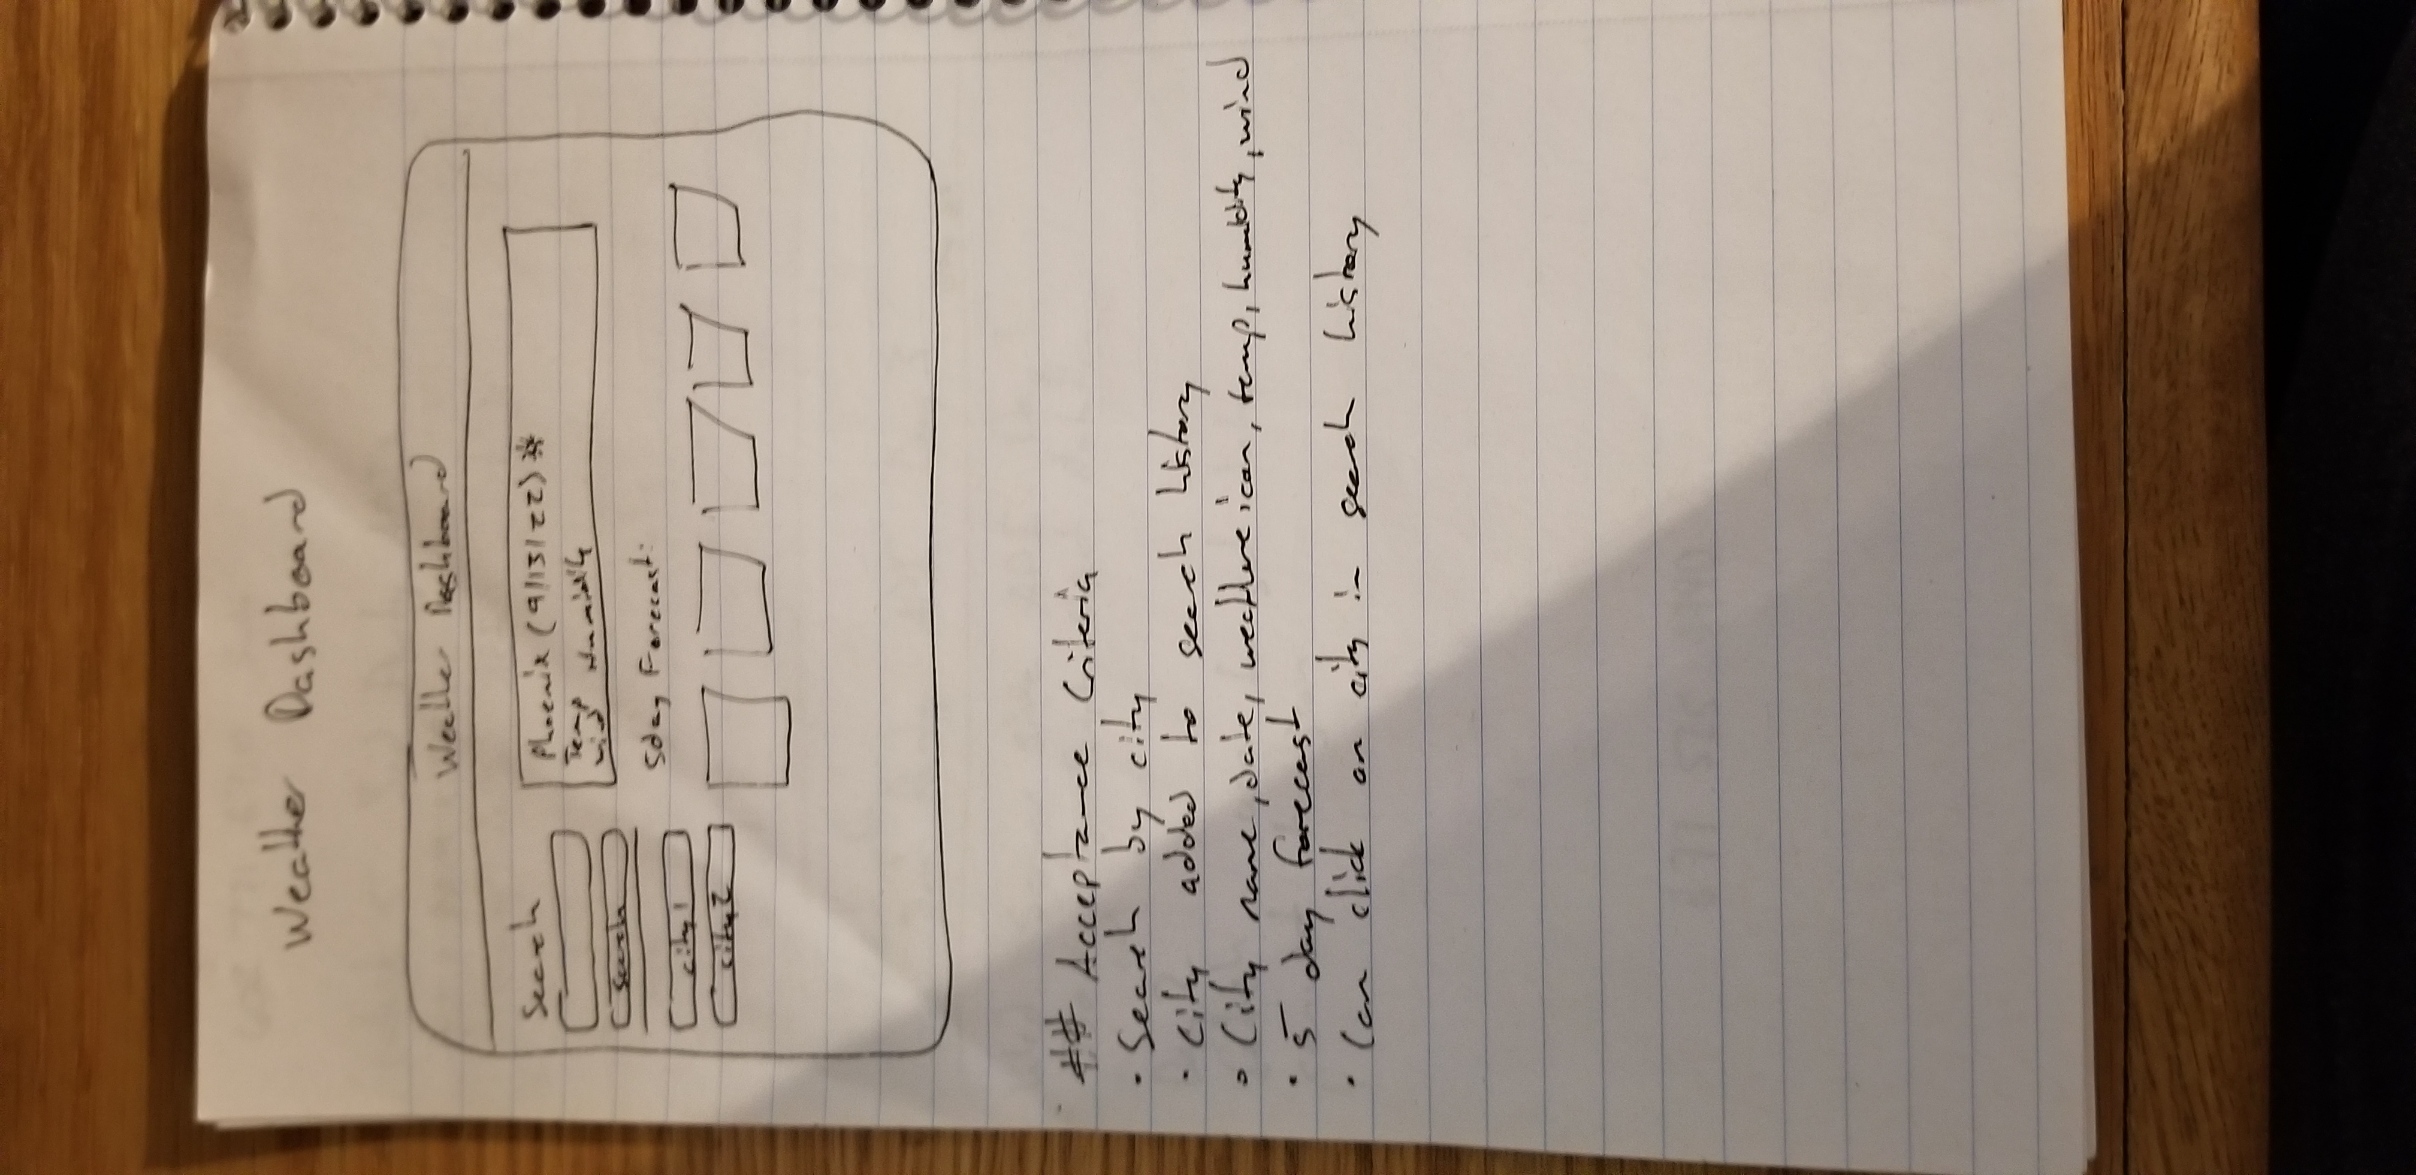 Weather Dashboard
Weather Dashboard
Search
Phoenix (9/13/22)
Temp
Wind Humidity
search
5day Forecast:
city1
city2
## Acceptance Criteria
· Search by city
· City added to search history
· City name, date, weather icon, temp, humidity, wind
· 5 day forecast
· Can click on city in search history